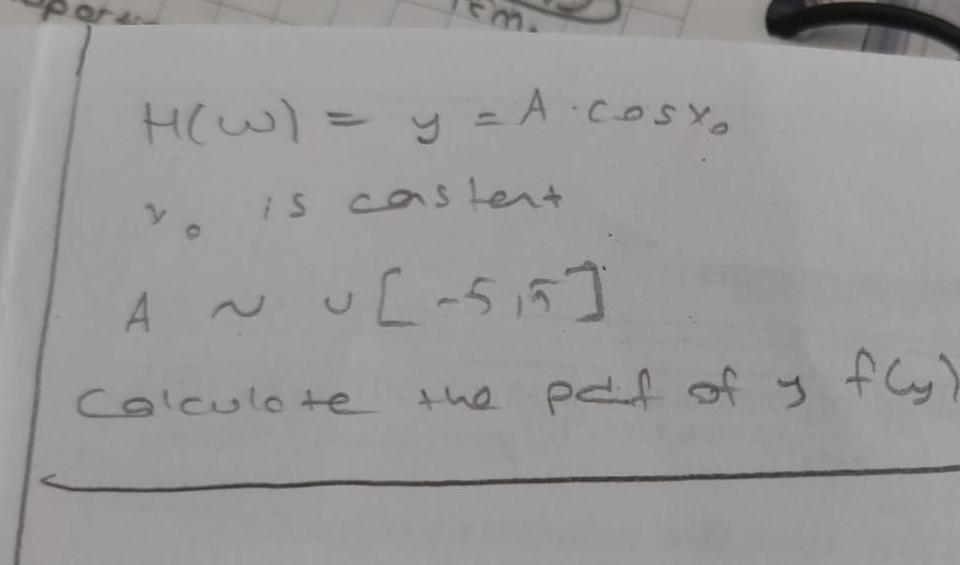 H(ω) = y = A · cos x₀
x₀ is castent
A ~ U[-5,5]
Calculate the pdf of y f(y)